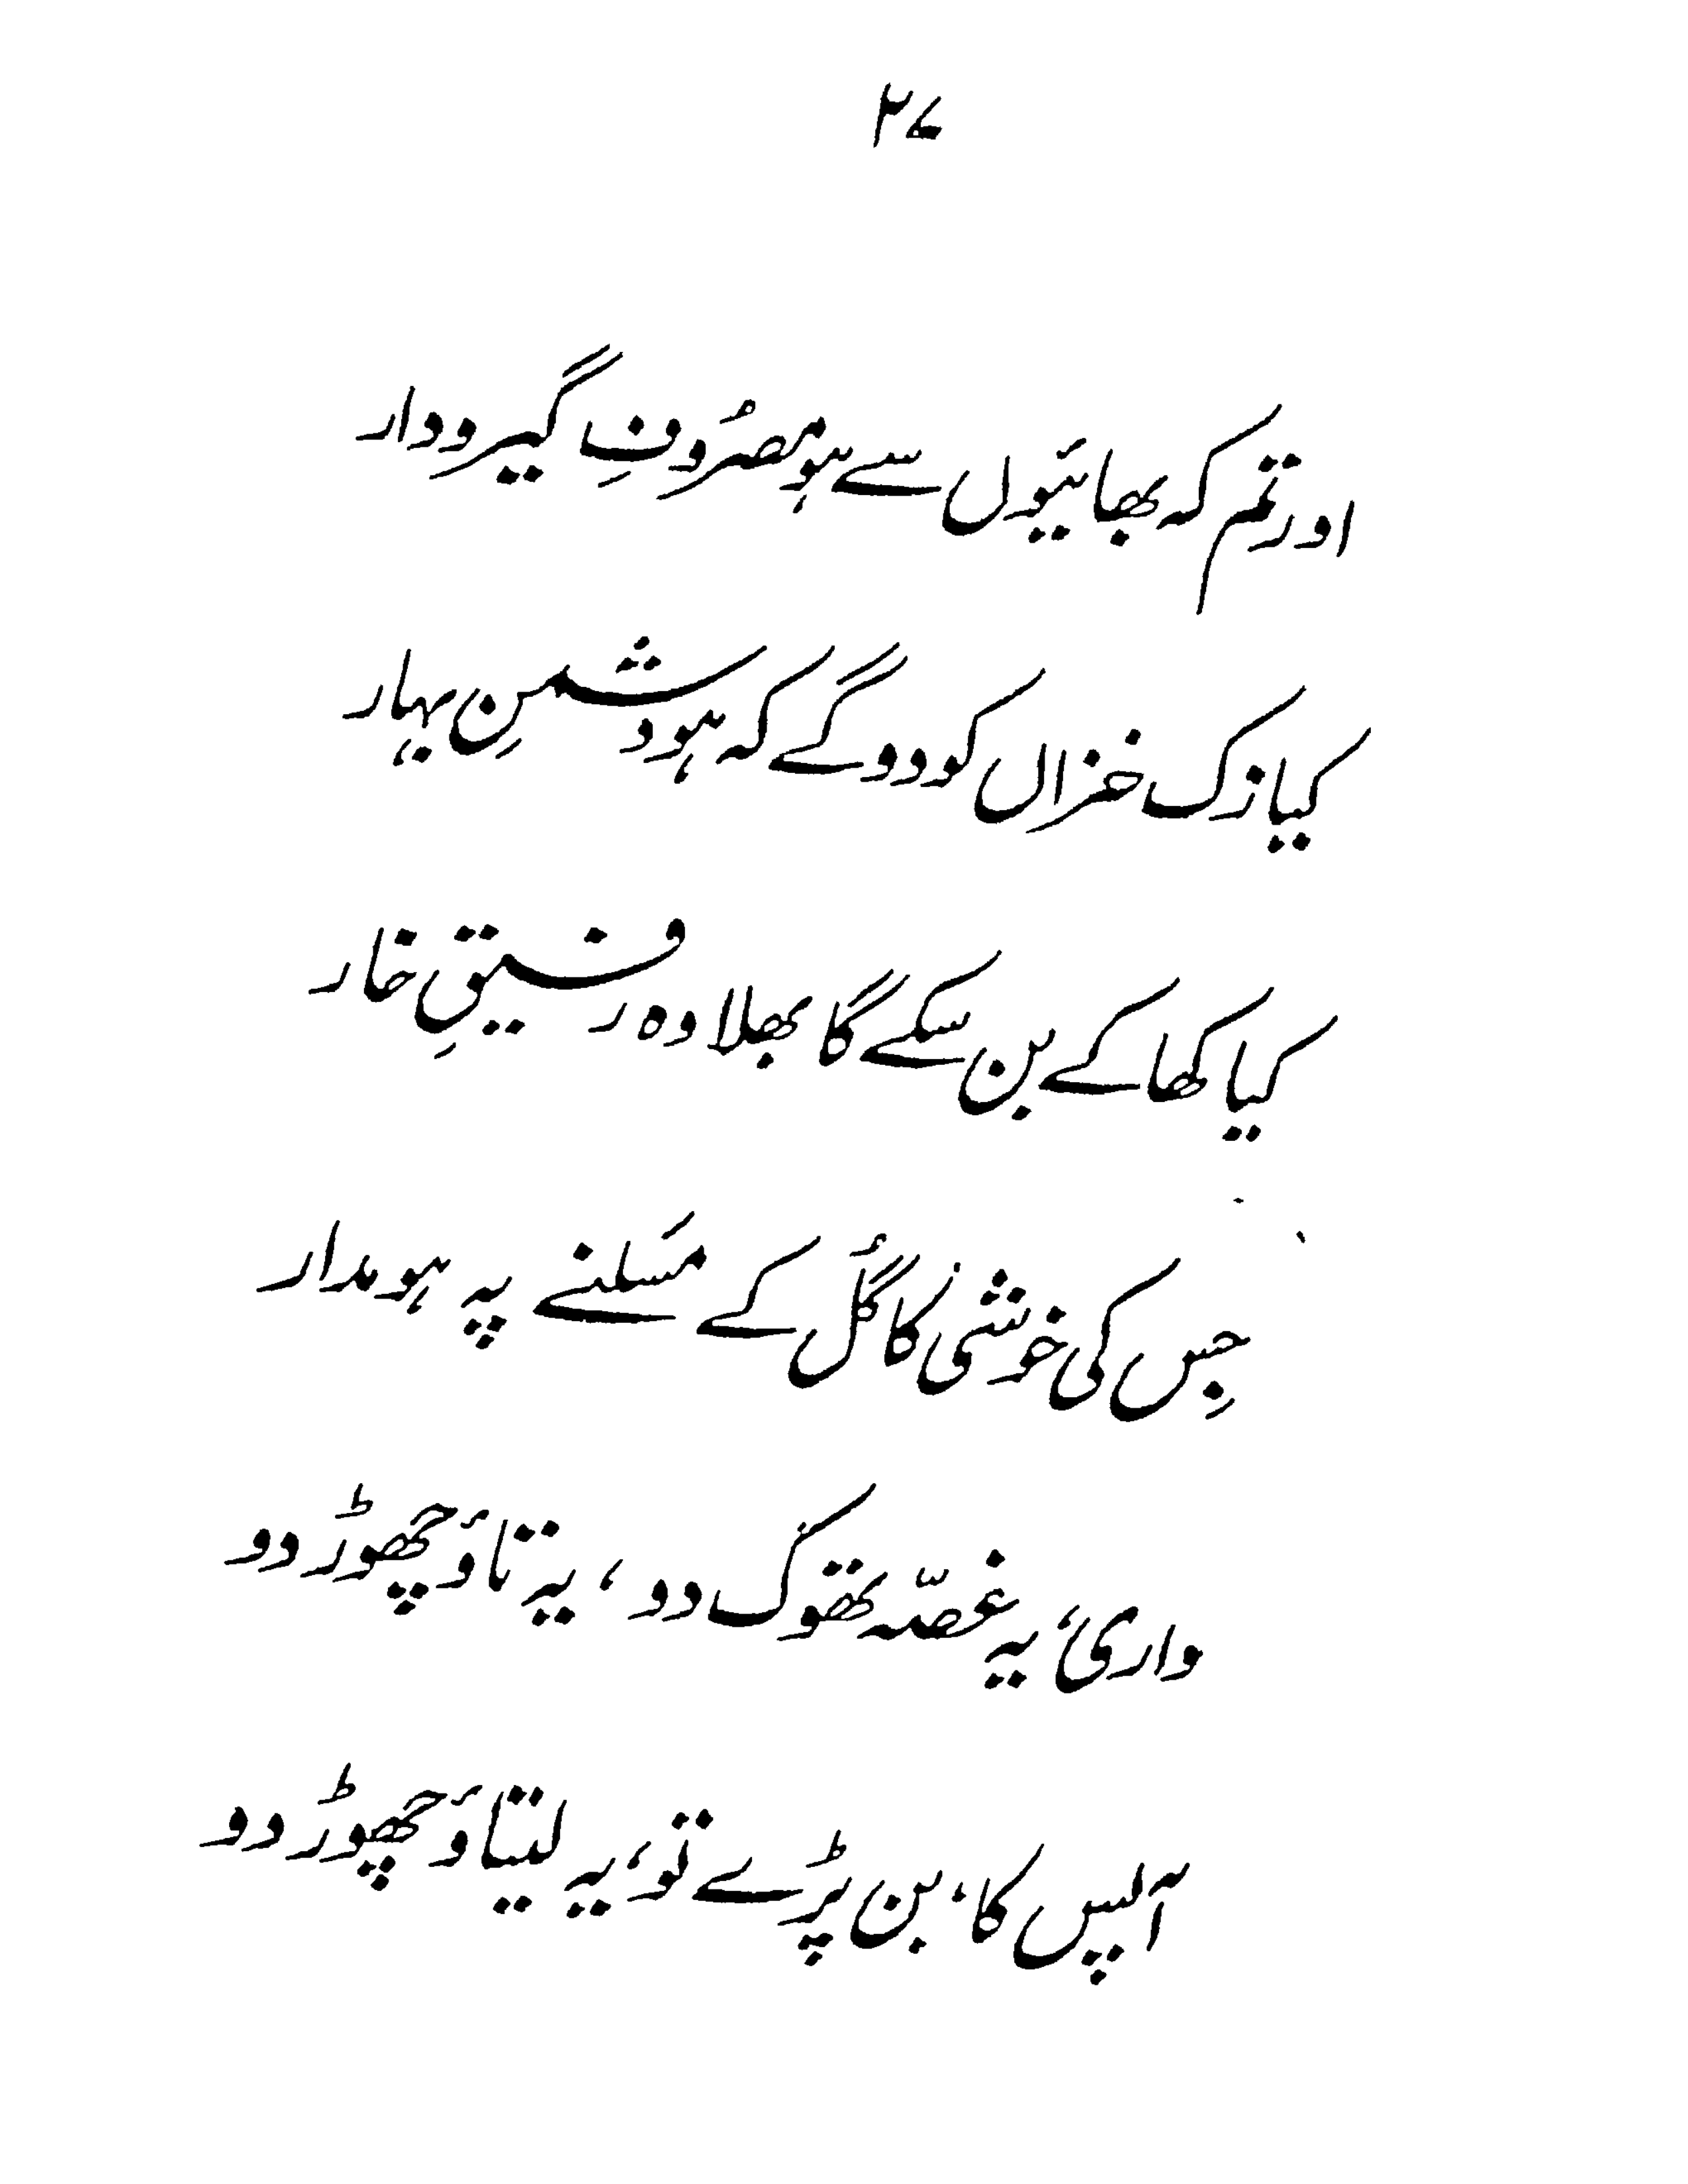 ۲۷
اور تم کہ بھائیوں سے ہو مصرُوفِ گیر و دار
کیا زک خزاں کو دو گے کہ ہو دشمنِ بہار
کیا کھا کے بن سکے گا بھلا وہ رفیقِ خار
جِس کی خوشی کا گُل کے مَسلنے پہ ہو مدار
واری، یہ غصّہ تھوک دو، یہ تاؤ چھوڑ دو
آپس کا، بن پڑے تو، یہ لیتاؤ چھوڑ دو